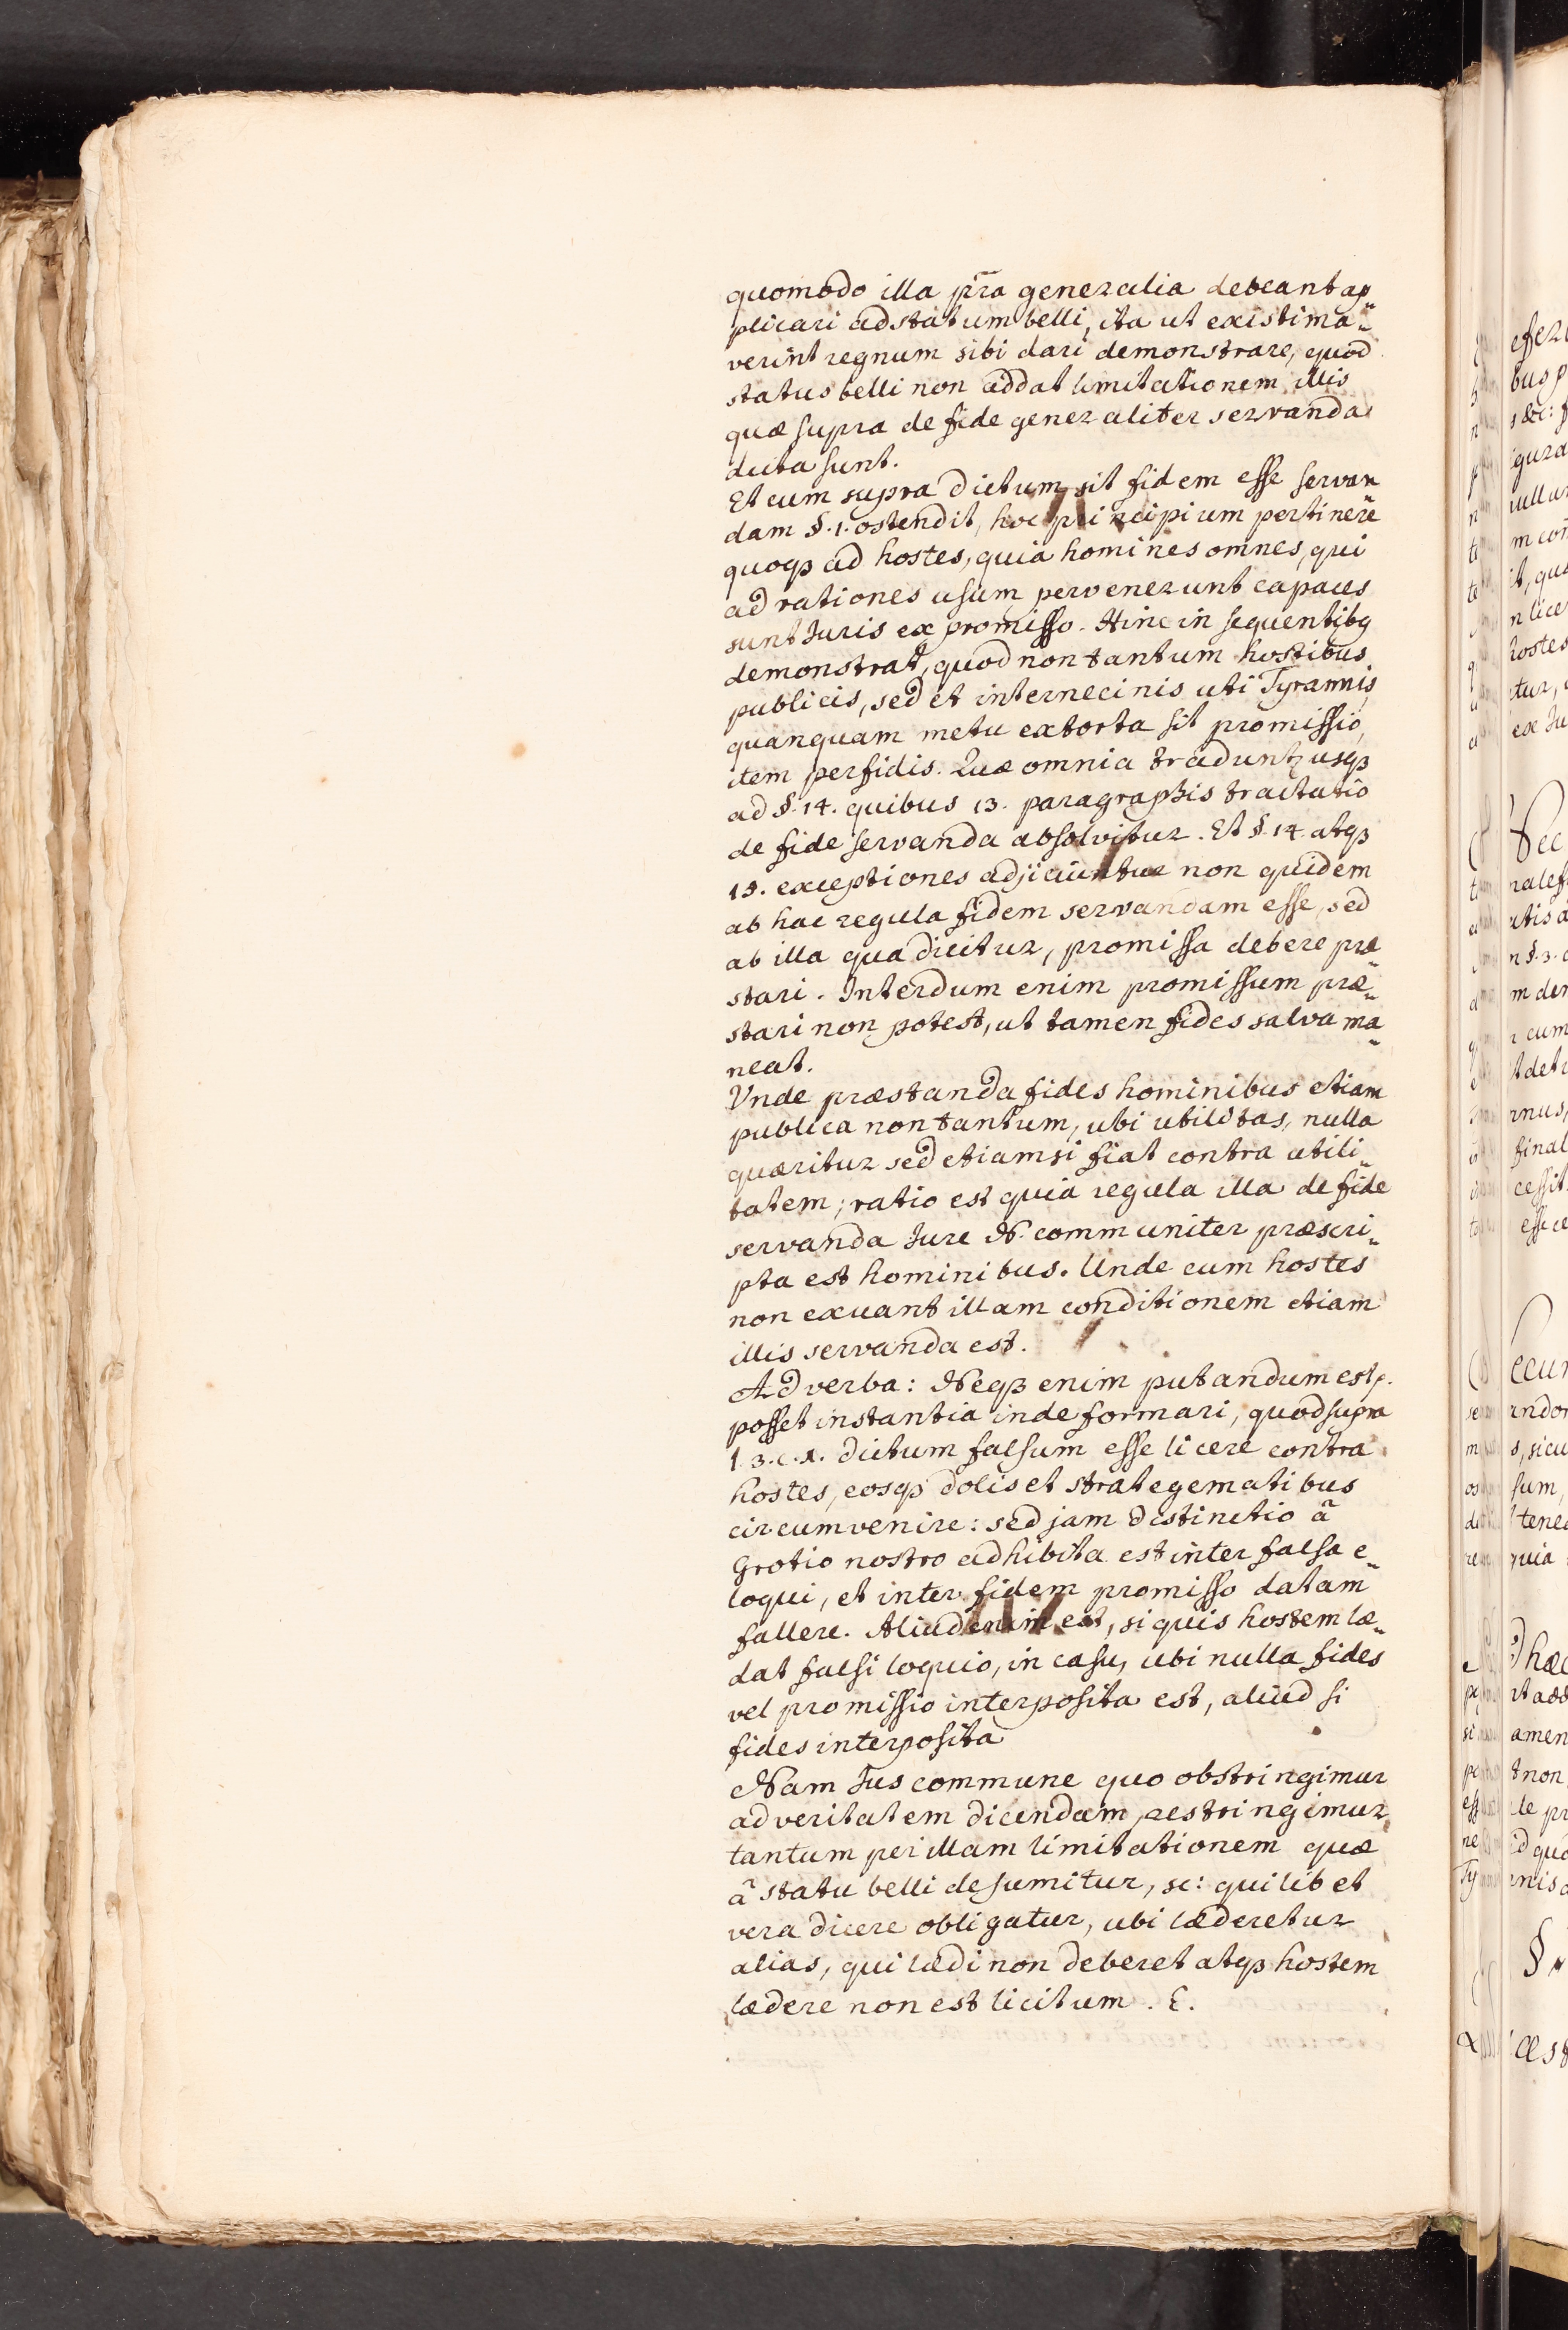 quomodo illa pr̄a generalia debeant ap„
plicari ad statum belli, ita ut existima„
verint regnum sibi dari demonstrare, quod
status belli non addat limitationem illis
quæ supra de fide generaliter servanda
dicta sunt.
Et cum supra dictum sit fidem esse servan„
dam §.1. ostendit, hoc principium pertinere
quoqꝫ ad hostes, quia homines omnes, qui
ad rationes usum pervenerunt capaces
sunt Juris ex promisso. Hinc in sequentibꝰ
demonstrat, quod non tantum hostibus
publicis, sed et internecinis uti Tyrannis,
quanquam metu extorta sit promissio,
item perfidis. Quæ omnia tradunt᷑ usqꝫ
ad §. 14. quibus 13. paragraphis tractatio
de fide servanda absolvitur. Et §. 14. atqꝫ
15. exceptiones adjiciuntur non quidem
ab hac regula fidem servandam esse, sed
ab illa qua dicitur, promissa debere præ„
stari. Interdum enim promissum præ„
stari non potest, ut tamen fides salva ma„
neat.
Vnde præstanda fides hominibus etiam
publica non tantum, ubi utilitas, nulla
quæritur sed etiamsi fiat contra utili„
tatem; ratio est quia regula illa de fide
servanda Jure N. communiter præscri„
pta est hominibus. Unde cum hostes
non exuant illam conditionem etiam
illis servanda est.
Ad verba: Neqꝫ enim putandum est p.
posset instantia inde formari, quod supra
l. 3. c. 1. dictum falsum esse licere contra
hostes, eosqꝫ dolis et strategematibus
circumvenire: sed jam distinctio â
Grotio nostro adhibita est inter falsa e„
loqui, et inter fidem promisso datam
fallere. Aliud enim est, si quis hostem læ„
dat falsi loquio, in casu, ubi nulla fides
vel promissio interposita est, aliud si
fides interposita
Nam Jus commune quo obstringimur
ad veritatem dicendam, restringimur
tantum per illam limitationem quæ
â statu belli desumitur, sc: quilibet
vera dicere obligatur, ubi læderetur
alias, qui lædi non deberet atqꝫ hostem
lædere non est licitum. E.